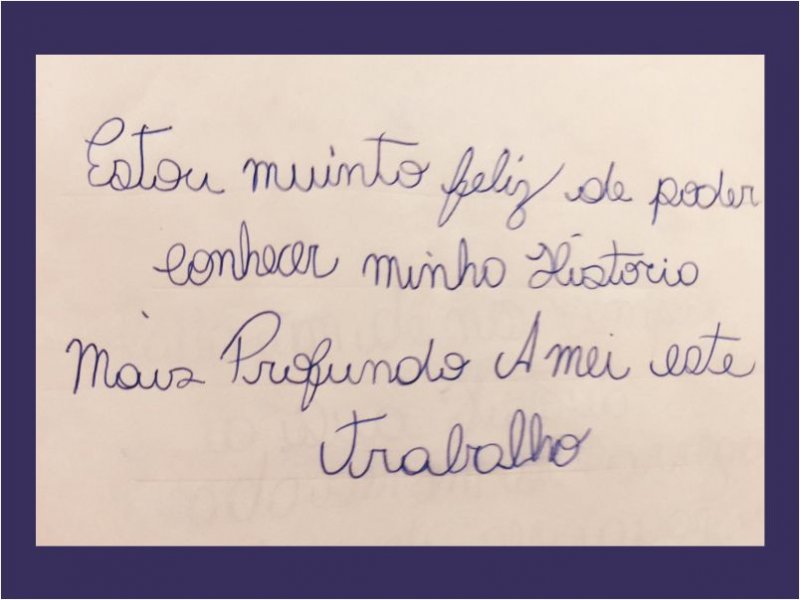 Estou muinto feliz de poder
conhecer minha História
Mais Profundo Amei este
trabalho